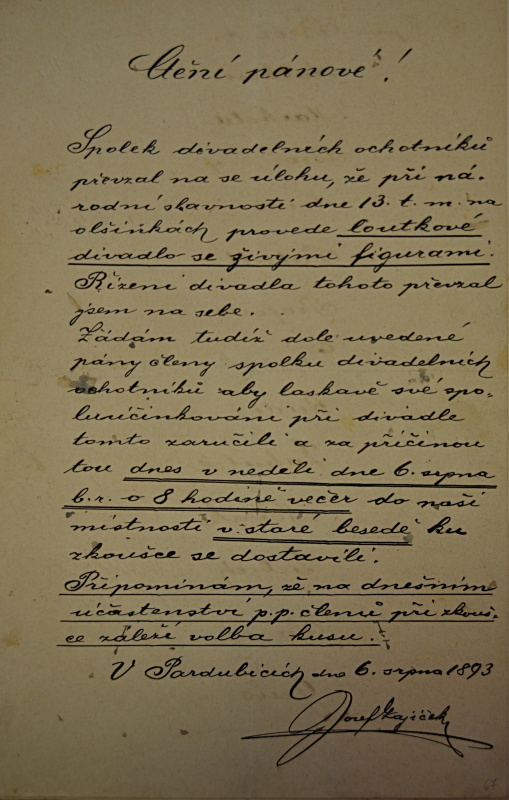 Ctění pánové!
Spolek divadelních ochotníků
převzal na se úlohu, že při ná-
rodní slavnosti dne 13. t. m. na
olšinkách provede loutkové
divadlo se živými figurami.
Řízení divadla tohoto převzal
jsem na sebe.
Žádám tudíž dole uvedené
pány členy spolku divadelních
ochotníků aby laskavě své spo-
luúčinkování při divadle
tomto zaručili a za příčinou
tou dnes v neděli dne 6. srpna
b. r. o 8 hodině večer do naší
místnosti v staré besedě ku
zkoušce se dostavili.
Připomínám, že na dnešním
účastenství p. p. členů při zkouš-
ce záleží volba kusu.
V Pardubicích dne 6. srpna 1893
Josef Zajíček
67